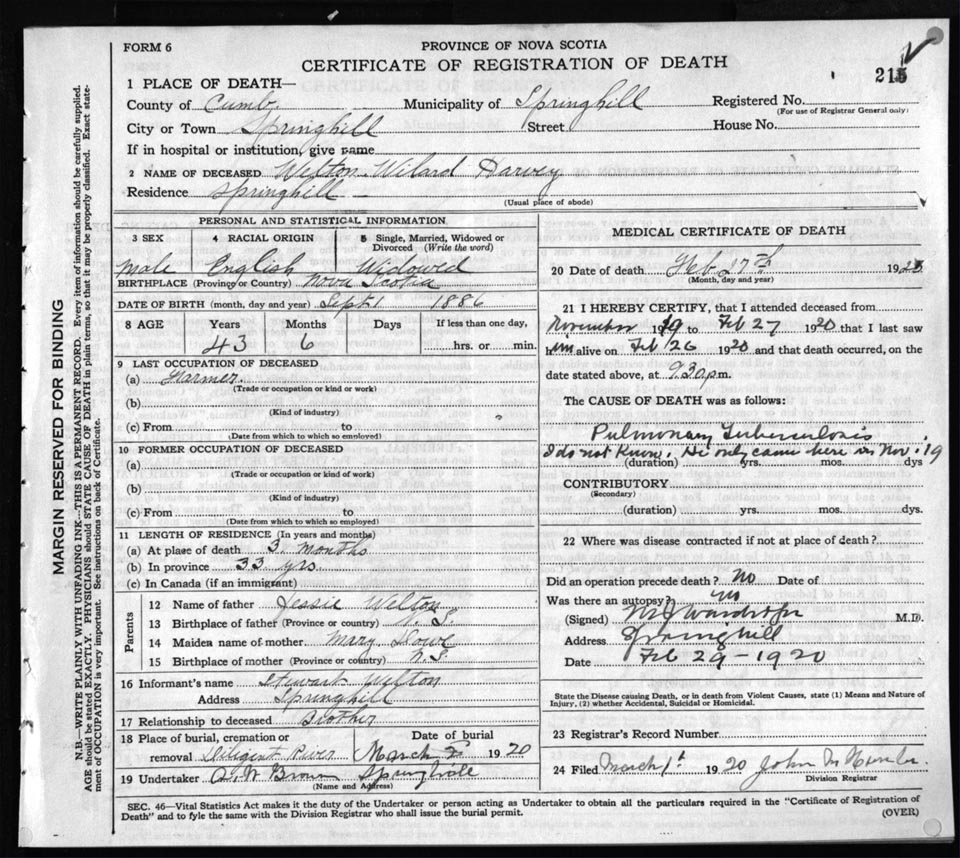 FORM 6
PROVINCE OF NOVA SCOTIA
CERTIFICATE OF REGISTRATION OF DEATH
215
1 PLACE OF DEATH—
County of Cumb. Municipality of Springhill Registered No.
(For use of Registrar General only)
City or Town Springhill Street House No.
If in hospital or institution, give name
2 NAME OF DECEASED Welton Wilard Harvey
Residence Springhill
(Usual place of abode)
PERSONAL AND STATISTICAL INFORMATION
3 SEX 4 RACIAL ORIGIN 5 Single, Married, Widowed or Divorced (Write the word)
Male English Widowed
BIRTHPLACE (Province or Country) Nova Scotia
DATE OF BIRTH (month, day and year) Sept 1 1886
8 AGE Years Months Days If less than one day,
43 6 hrs. or min.
9 LAST OCCUPATION OF DECEASED
(a) Farmer
(Trade or occupation or kind or work)
(b)
(Kind of industry)
(c) From to
(Date from which to which so employed)
10 FORMER OCCUPATION OF DECEASED
(a)
(Trade or occupation or kind of work)
(b)
(Kind of industry)
(c) From to
(Date from which to which so employed)
11 LENGTH OF RESIDENCE (In years and months)
(a) At place of death 3 months
(b) In province 33 yrs
(c) In Canada (if an immigrant)
Parents
12 Name of father Jessie Welton
13 Birthplace of father (Province or country) N. S.
14 Maiden name of mother Mary Howe
15 Birthplace of mother (Province or country) N. S
16 Informant's name Stewart Welton
Address Springhill
17 Relationship to deceased Brother
18 Place of burial, cremation or Date of burial
removal Diligent River March 1920
19 Undertaker A. W Brown Springhill
(Name and Address)
MEDICAL CERTIFICATE OF DEATH
20 Date of death Feb. 27th 192
(Month, day and year)
21 I HEREBY CERTIFY, that I attended deceased from
November 1919 to Feb 27 1920 that I last saw
him alive on Feb 26 1920 and that death occurred, on the
date stated above, at 9.30 p.m.
The CAUSE OF DEATH was as follows:
Pulmonary Tuberculosis
I do not know. He only came here in Nov. 19
(duration) yrs. mos. dys
CONTRIBUTORY
(Secondary)
(duration) yrs. mos. dys.
22 Where was disease contracted if not at place of death?
Did an operation precede death? No Date of
Was there an autopsy? No
(Signed) Wardrope M.D.
Address Springhill
Date Feb 29-1920
State the Disease causing Death, or in death from Violent Causes, state (1) Means and Nature of
Injury, (2) whether Accidental, Suicidal or Homicidal.
23 Registrar's Record Number
24 Filed March 1st 1920 John
Division Registrar
SEC. 46—Vital Statistics Act makes it the duty of the Undertaker or person acting as Undertaker to obtain all the particulars required in the "Certificate of Registration of
Death" and to fyle the same with the Division Registrar who shall issue the burial permit.
(OVER)
MARGIN RESERVED FOR BINDING
N.B.—WRITE PLAINLY WITH UNFADING INK—THIS IS A PERMANENT RECORD. Every item of information should be carefully supplied.
AGE should be stated EXACTLY. PHYSICIANS should STATE CAUSE OF DEATH in plain terms, so that it may be properly classified. Exact state-
ment of OCCUPATION is very important. See instructions on back of Certificate.